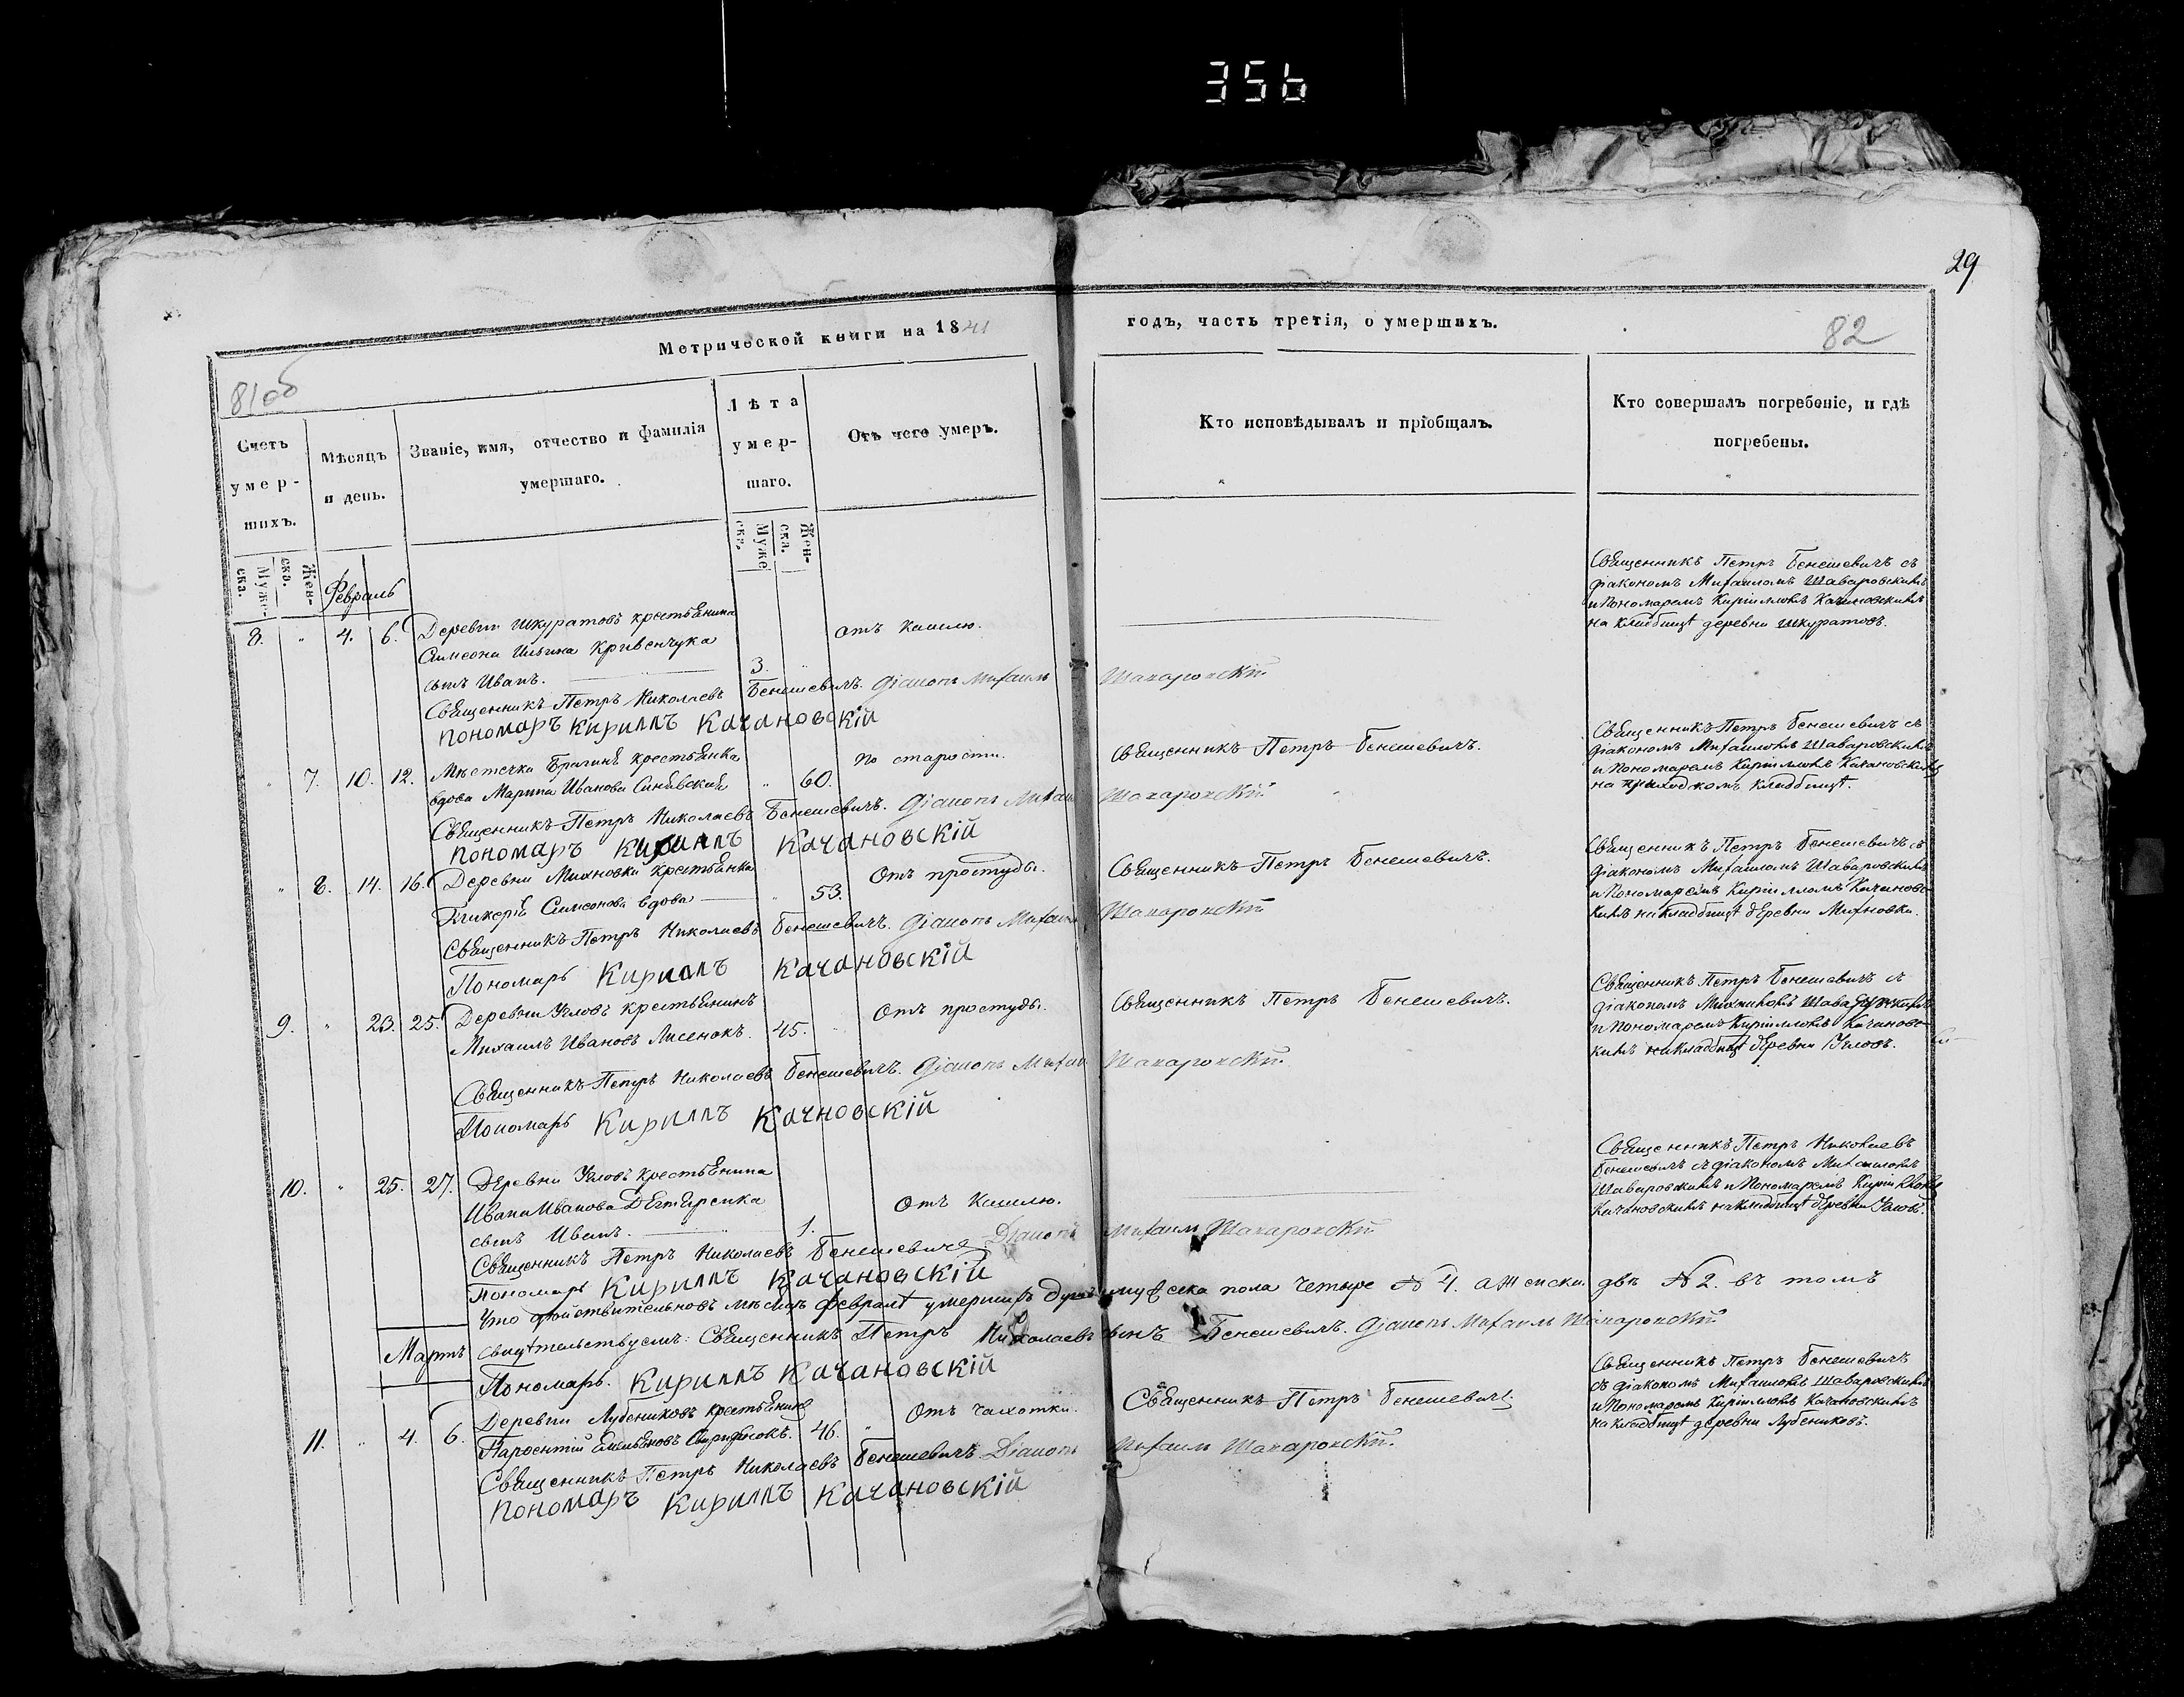 356
29
Метрической книги на 1841
годъ, часть третія, о умершихъ.
81об
82
Счетъ умер-шихъ.
Мужеска.
Женска.
Мѣсяцъ и день.
Званіе, имя, отчество и фамилія умершаго.
Лѣта умер-шаго.
Мужеска.
Женска.
Отъ чего умеръ.
Кто исповѣдывалъ и пріобщалъ.
Кто совершалъ погребеніе, и гдѣ погребены.
Февраль
8. " 4. 6. Деревни Шкуратовъ крестьянина
Симеона Ильина Кривенчука
сынъ Иванъ. 3. "
отъ кашлю.
Священникъ Петръ Бенешевичъ съ
діакономъ Михаиломъ Шаваровскимъ
и Пономаремъ Кирилломъ Качановскимъ
на кладбищѣ деревни Шкуратовъ.
Священникъ Петръ Николаевъ Бенешевичъ. Діаконъ Михаилъ Шаваровскій
пономаръ Кириллъ Качановскій
" 7. 10. 12. Мѣстечка Брагинѣ крестьянка
вдова Марина Иванова Синявская " 60.
по старости.
Священникъ Петръ Бенешевичъ.
Священникъ Петръ Бенешевичъ съ
діакономъ Михаиломъ Шаваровскимъ
и Пономаремъ Кирилломъ Качановскимъ
на приходскомъ кладбищѣ.
Священникъ Петръ Николаевъ Бенешевичъ. Діаконъ Михаилъ Шаваровскій
пономаръ Кириллъ Качановскій
" 8. 14. 16. Деревни Михновки крестьянка
Гликерія Симеонова вдова " 53.
Отъ простуды.
Священникъ Петръ Бенешевичъ.
Священникъ Петръ Бенешевичъ съ
діакономъ Михаиломъ Шаваровскимъ
и Пономаремъ Кирилломъ Качановс-
кимъ на кладбищѣ деревни Михновки.
Священникъ Петръ Николаевъ Бенешевичъ. Діаконъ Михаилъ Шаваровскій
Пономарь Кириллъ Качановскій
9. " 23. 25. Деревни Угловъ крестьянинъ
Михаилъ Ивановъ Лисенокъ. 45. "
Отъ простуды.
Священникъ Петръ Бенешевичъ.
Священникъ Петръ Бенешевичъ съ
діакономъ Михаиломъ Шаваровскимъ
и Пономаремъ Кирилломъ Качановс-
кимъ на кладбищѣ деревни Угловъ.
Священникъ Петръ Николаевъ Бенешевичъ. Діаконъ Михаилъ Шаваровскій
Пономарь Кириллъ Качновскій
10. " 25. 27. Деревни Угловъ крестьянина
Ивана Иванова Дегтяренка
сынъ Иванъ. 1.
Отъ кашлю.
Священникъ Петръ Николаевъ
Бенешевичъ съ діакономъ Михаиломъ
Шаваровскимъ и Пономаремъ Кирилломъ
Качановскимъ на кладбищѣ деревни Угловъ.
Священникъ Петръ Николаевъ Бенешевичъ Діаконъ Михаилъ Шаваровскій
Пономарь Кириллъ Качановскій
Что дѣйствительно въ мѣсяцѣ февралѣ умершихъ душъ мужеска пола четыре № 4. а женска двѣ № 2. въ томъ
свидѣтельствуемъ: Священникъ Петръ Николаевъ сынъ Бенешевичъ. Діаконъ Михаилъ Шаваровскій
Мартъ
Пономарь. Кириллъ Качановскій
11. " 4. 6. Деревни Лубениковъ крестьянинъ
Парфентій Емельяновъ Спиридонокъ. 46. "
Отъ чахотки.
Священникъ Петръ Бенешевичъ
Священникъ Петръ Бенешевичъ
съ діакономъ Михаиломъ Шаваровскимъ
и Пономаремъ Кирилломъ Качановскимъ
на кладбищѣ деревни Лубениковъ.
Священникъ Петръ Николаевъ Бенешевичъ Діаконъ Михаилъ Шаваровскій.
пономаръ Кириллъ Качановскій